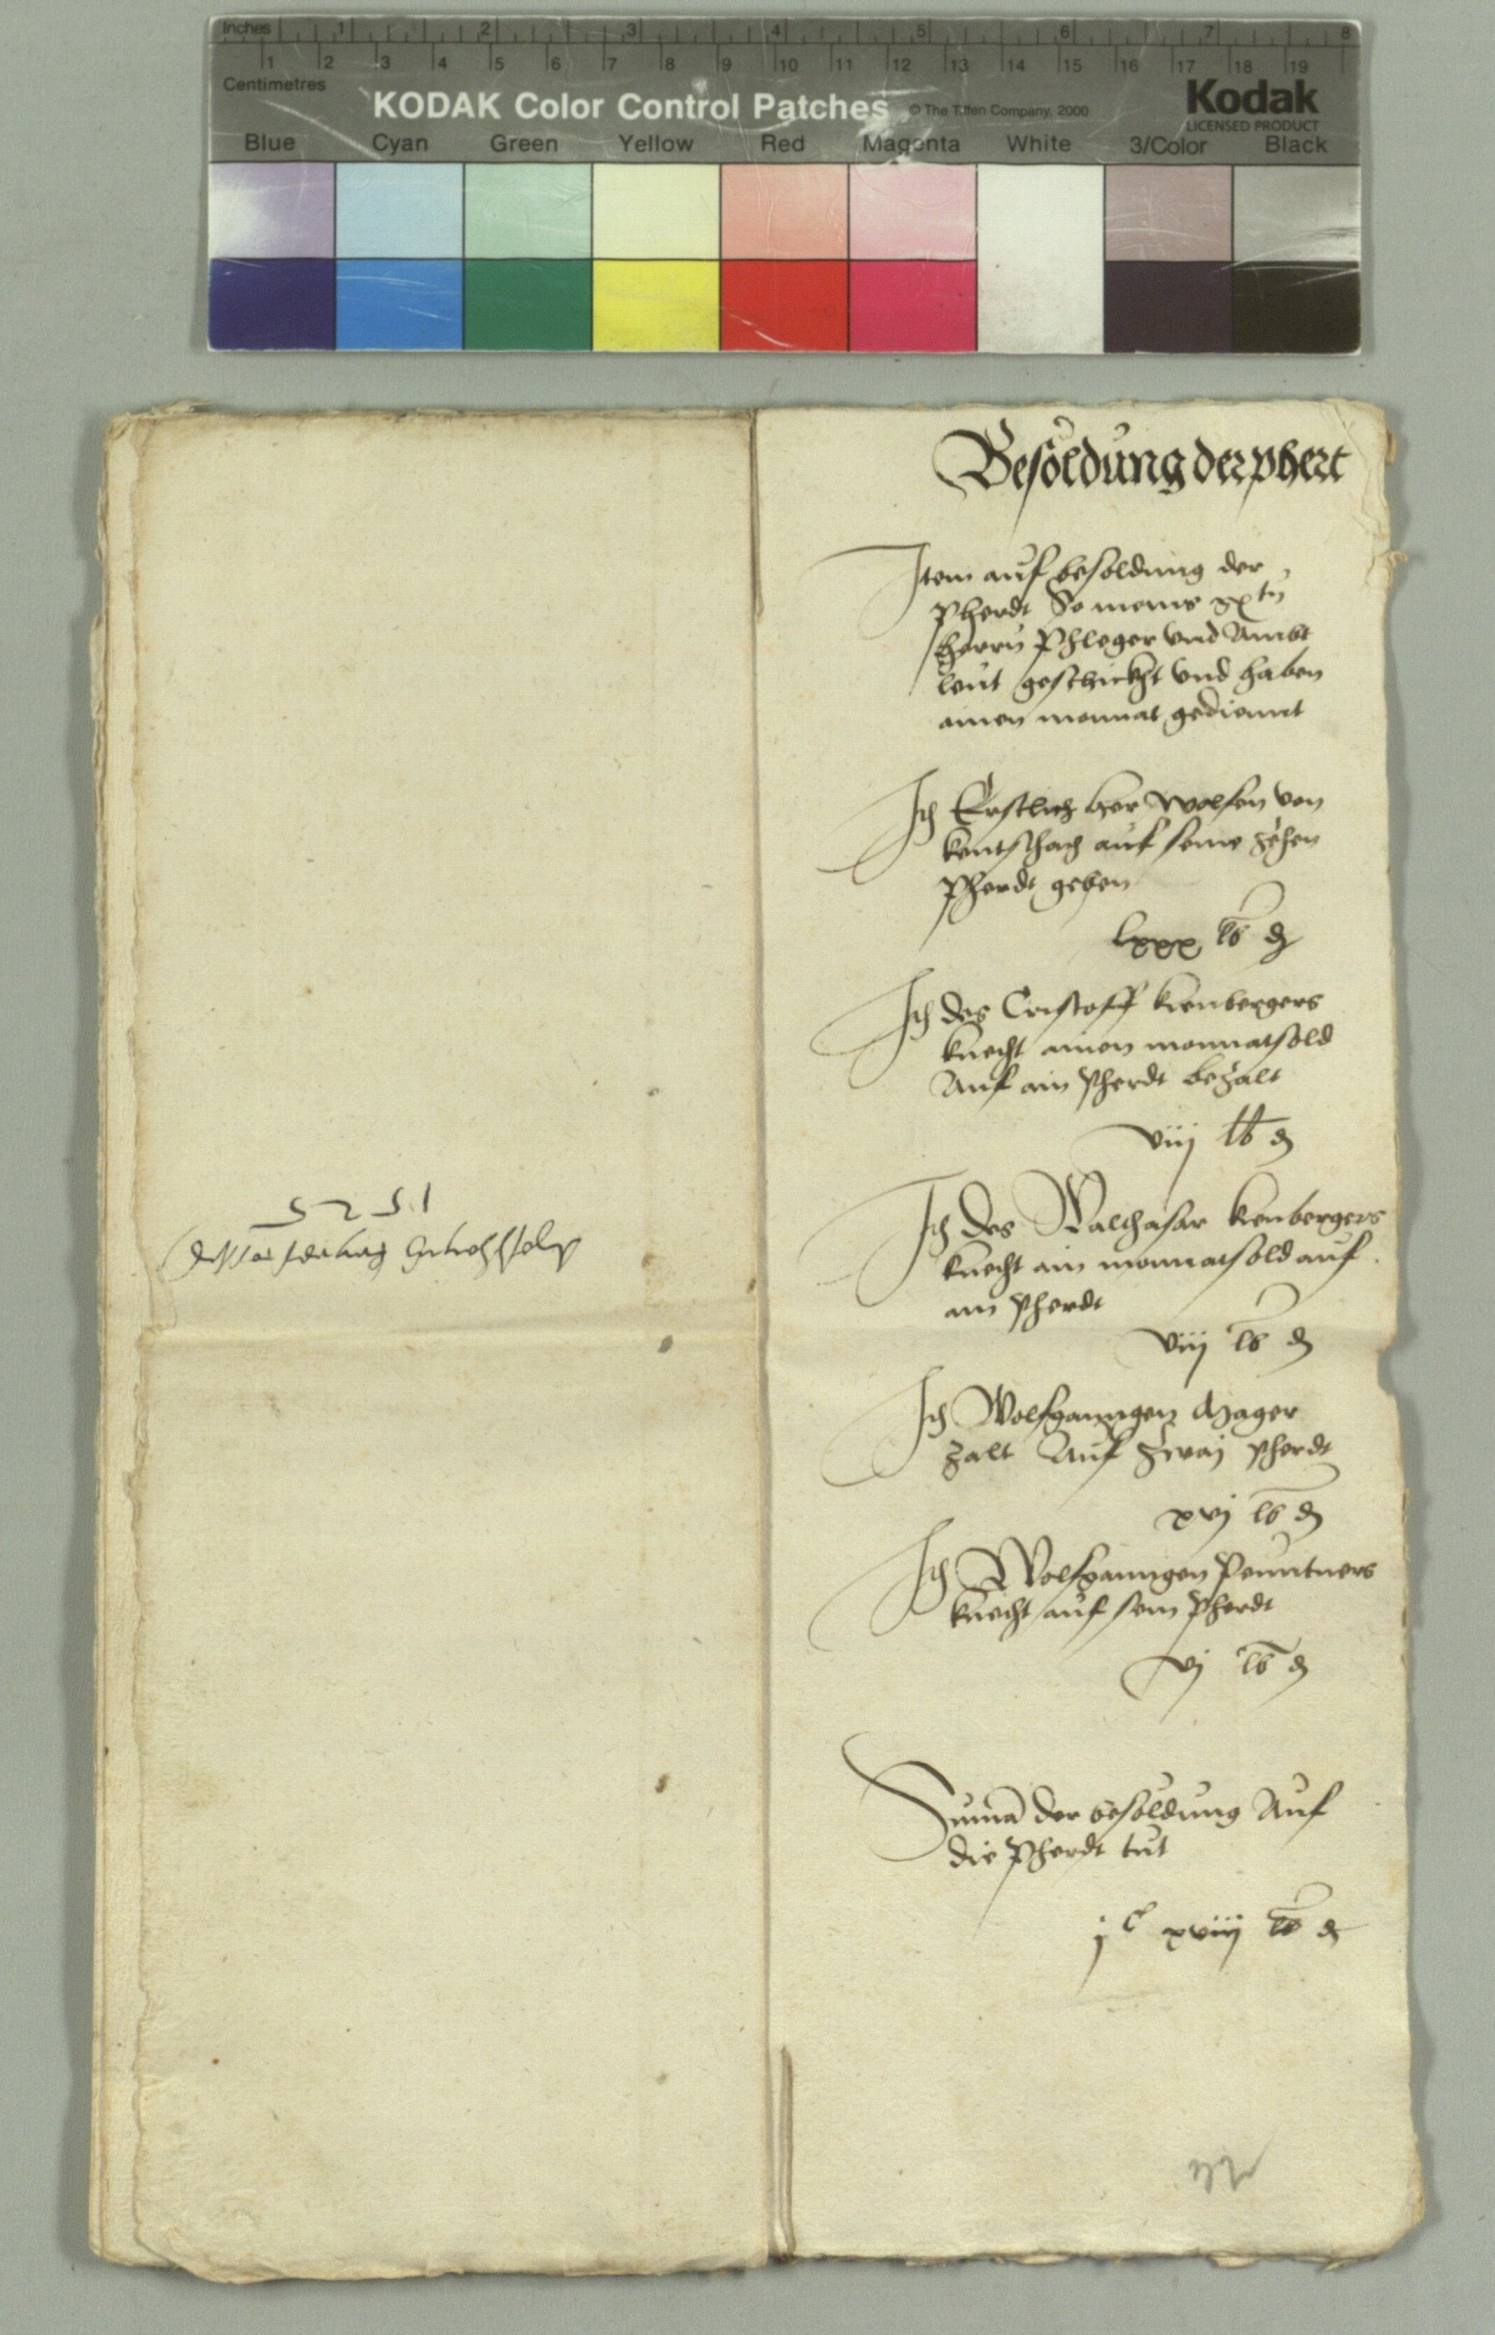 Inches 1 2 3 4 5 6 7 8
1 2 3 4 5 6 7 8 9 10 11 12 13 14 15 16 17 18 19
Centimetres
KODAK Color Control Patches © The Tiffen Company, 2000 Kodak
LICENSED PRODUCT
Blue Cyan Green Yellow Red Magenta White 3/Color Black
Besoldung der phert
Item auf besoldung der
pherdt So meine
herrn Phleger vnd Ambt
leut geschickht vnd haben
ainen monnat gediennt
Ich Erstlich her Wolfen von
keutschach auf seine zehen
Pherdt geben
lxxx lb d
Ich des Cristoff kienbergers
knecht ainen monnatsold
Auf ain pherdt bezalt
viij lb d
Ich des Balthasar kienbergers
knecht ain monnatsold auf
ain pherdt
viij lb d
Ich Wolfganngen Mager
zalt Auf zwaj pherdt
xvj lb d
Ich Wolfganngen Peuntners
knecht auf sein pherdt
vj lb d
Suma der besoldung Auf
die Pherdt tut
jc xviij lb d